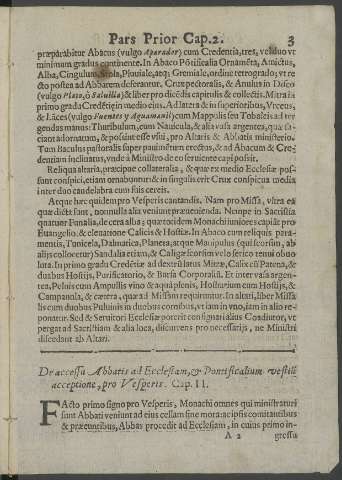 Pars Prior Cap. 2. 3
præparabitur Abacus (vulgo Aparador) cum Credentia, tres, vel duo vt
minimum gradus continente. In Abaco Põtificalia Ornamẽta, Amictus,
Alba, Cingulum, Stola, Pluuiale, atq; Gremiale, ordine retrogrado; vt re
cto postea ad Abbatem deferantur. Crux pectoralis, & Anulus in Disco
(vulgo Plato, ò Saluilla) & liber pro dicẽdis capitulis & collectis. Mitra in
primo gradu Credẽtię in medio eius. Ad latera & in superioribus, Vrceus,
& Lãces (vulgo Fuentes y Aguamanil) cum Mappulis seu Tobaleis ad ter
gendas manus: Thuribulum, cum Nauicula, & alia vasa argentea, quæ fa-
ciant ad ornatum, & possint esse vsui, pro Altaris & Abbatis ministerio.
Tum Baculus pastoralis super pauimẽtum erectus, & ad Abacum & Cre-
dentiam inclinatus, vnde à Ministro de eo seruiente capi possit.
Reliqua altaria, præcipue collateralia, & quæ ex medio Ecclesiæ pos-
sunt conspici, etiam ornabuntur: & in singulis erit Crux conspicua media
inter duo candelabra cum suis cereis.
Atque hæc quidem pro Vesperis cantandis. Nam pro Missa, vltra ea
quæ dicta sunt, nonnulla alia veniunt præuenienda. Nempe in Sacristia
quatuor Funalia, de cera alba; quæ totidem Monachi iuniores capiãt pro
Euangelio, & eleuatione Calicis & Hostiæ. In Abaco cum reliquis para-
mentis, Tunicela, Dalmatica, Planeta, atque Manipulus (qui seorsim, ab
alijs collocetur) Sandalia etiam, & Caligæ seorsim velo serico tenui obuo
luta. In primo gradu Credẽtiæ ad dextrũ latus Mitræ, Calix cũ Patena, &
duabus Hostijs, Purificatorio, & Bursa Corporalis. Et inter vasa argen-
tea, Peluis cum Ampullis vino & aqua plenis, Hostiarium cum Hostijs, &
Campanula, & cætera, quæ ad Missam requiruntur. In altari, liber Missa
lis cum duobus Puluinis in duobus cornibus, vt iam in vno, iam in alio re-
ponatur. Sed & Seruitori Ecclesiæ poterit consignari alius Coadiutor, vt
pergat ad Sacristiam & alia loca, discurrens pro necessarijs, ne Ministri
discedant ab Altari.
De accessu Abbatis ad Ecclesiam, & Pontificalium vestiũ
acceptione, pro Vesperis. Cap. II.
FActo primo signo pro Vesperis, Monachi omnes qui ministraturi
sunt Abbati veniunt ad eius cellam sine mora: a cipsis comitantibus
& præcuntibus, Abbas procedit ad Ecclesiam, in cuius primo in-
A 2 gressu